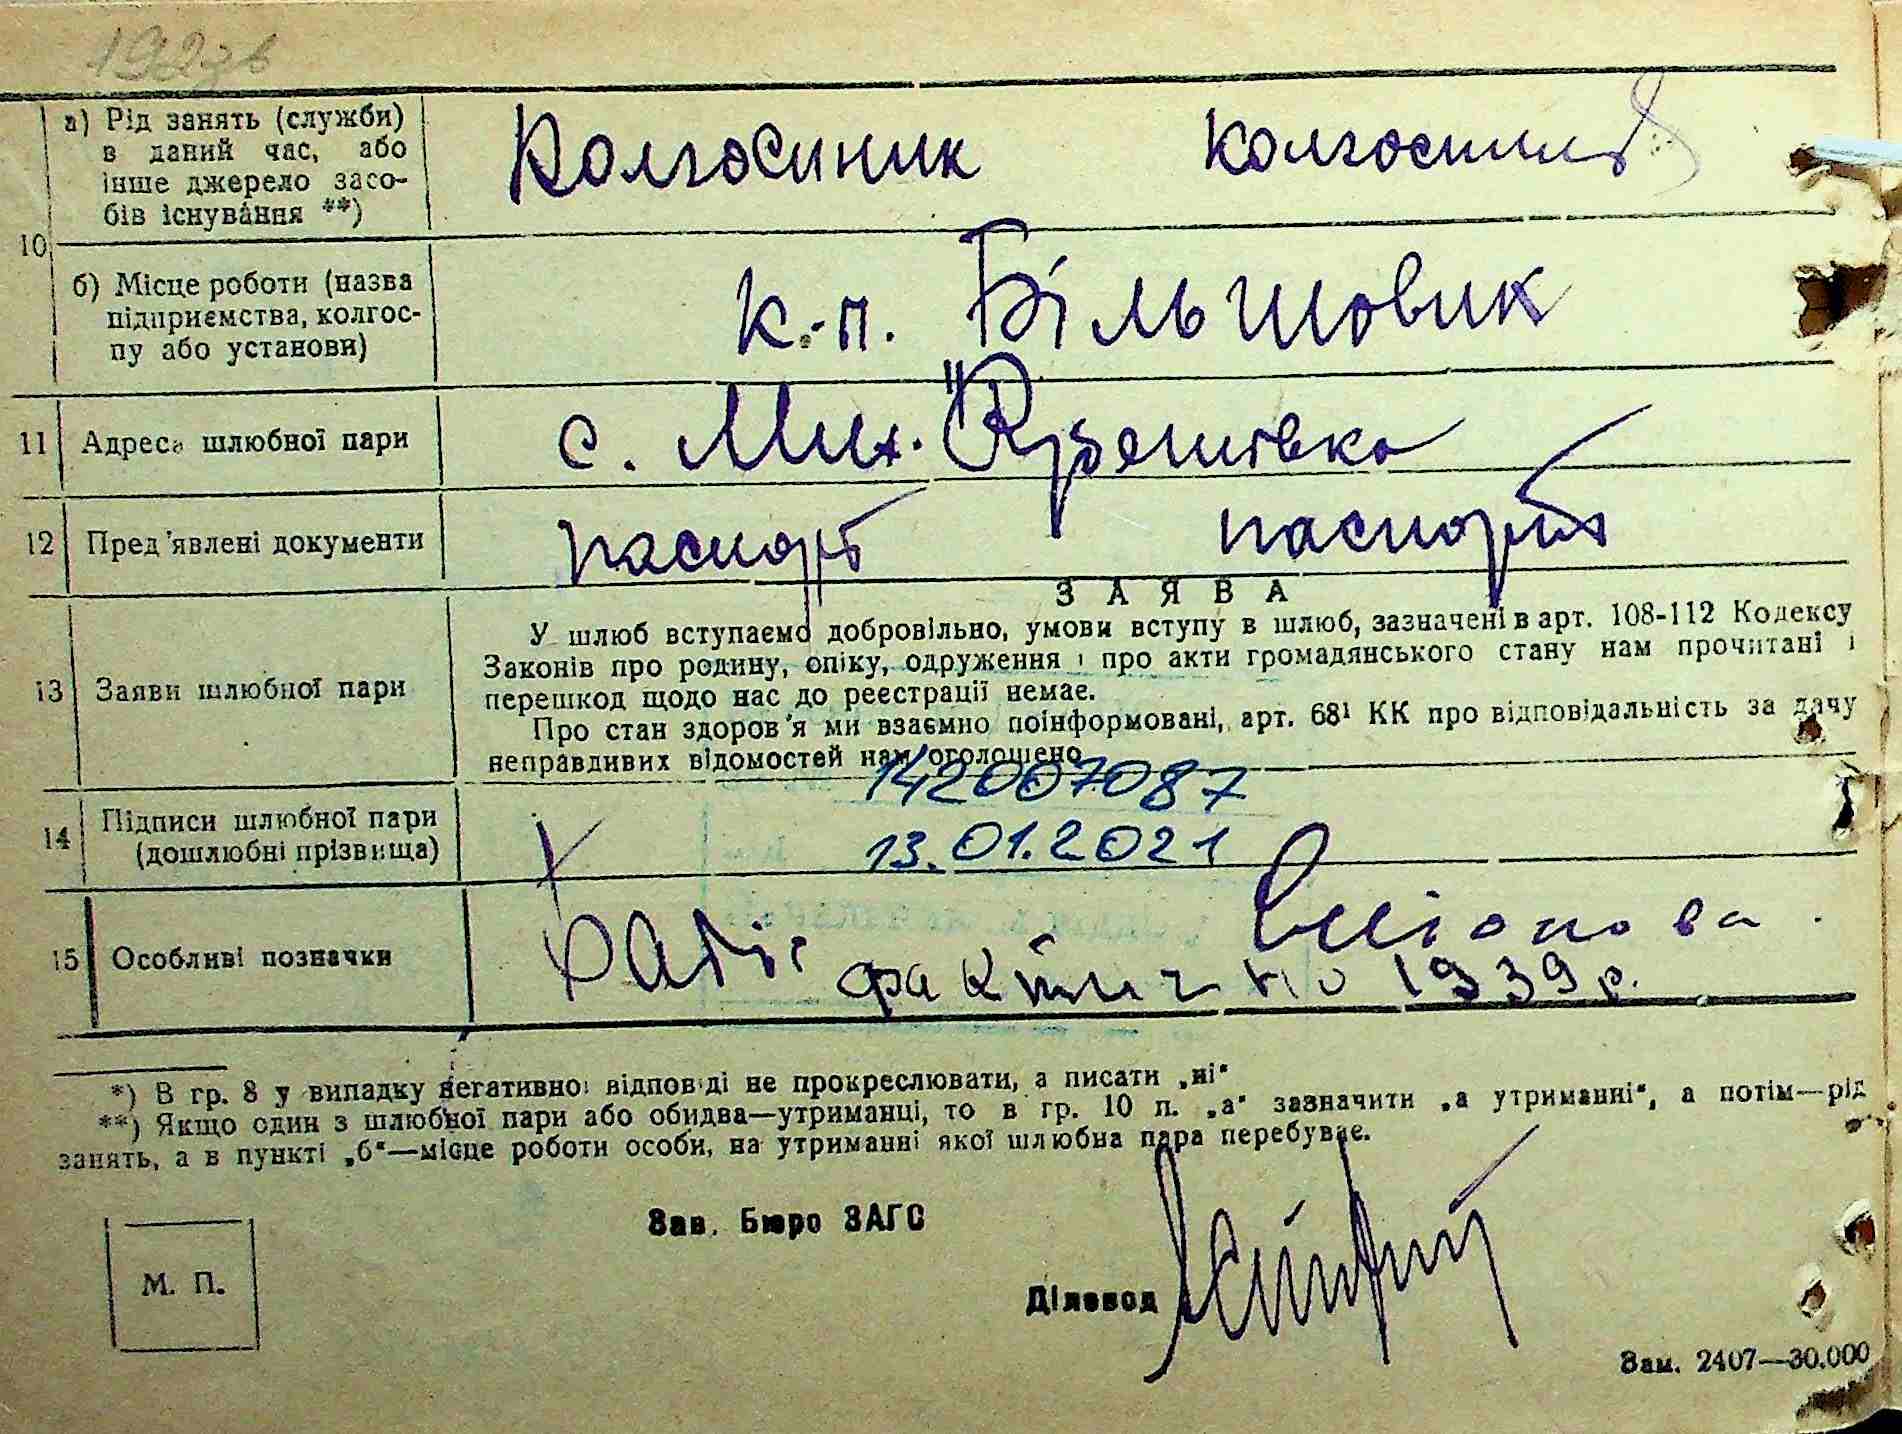 10 а) Рід занять (служби) в даний час, або інше джерело засобів існування **)
Колгоспник
б) Місце роботи (назва підприємства, колгоспу або установи)
к.-п. Більшовик
11 Адреса шлюбної пари
с. Мих.
12 Пред'явлені документи
паспорт паспорт
ЗАЯВА
13 Заяви шлюбної пари
У шлюб вступаємо добровільно, умови вступу в шлюб, зазначені в арт. 108-112 Кодексу
Законів про родину, опіку, одруження і про акти громадянського стану нам прочитані і
перешкод щодо нас до реєстрації немає.
Про стан здоров'я ми взаємно поінформовані, арт. 68¹ КК про відповідальність за дачу
неправдивих відомостей нам оголошено
142007087
14 Підписи шлюбної пари (дошлюбні прізвища)
13.01.2021
15 Особливі позначки
фактично 1939 р.
*) В гр. 8 у випадку негативної відповіді не прокреслювати, а писати „ні“
**) Якщо один з шлюбної пари або обидва—утриманці, то в гр. 10 п. „а“ зазначити „а утриманні“, а потім—рід
занять, а в пункті „б“—місце роботи особи, на утриманні якої шлюбна пара перебуває.
Зав. Бюро ЗАГС
М. П.
Діловод
Зам. 2407—30.000